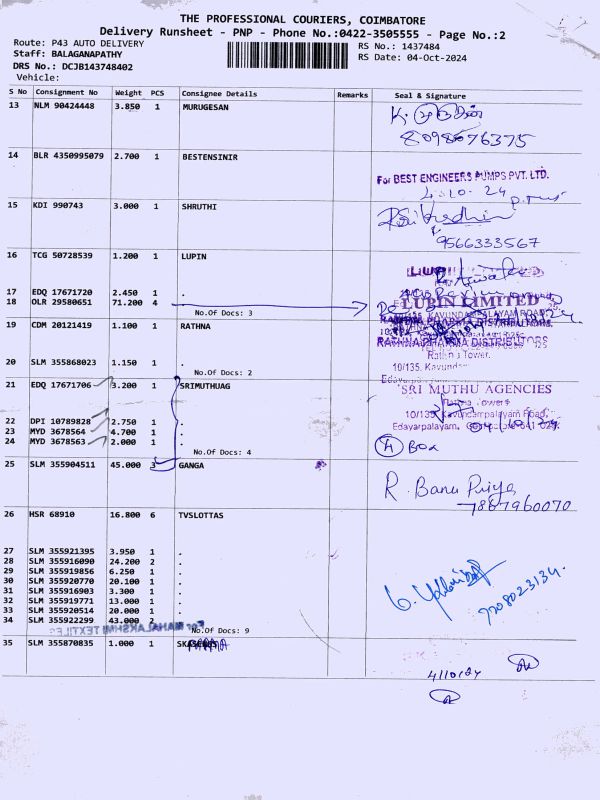 THE PROFESSIONAL COURIERS, COIMBATORE
Delivery Runsheet - PNP - Phone No.:0422-3505555 - Page No.:2
Route: P43 AUTO DELIVERY
Staff: BALAGANAPATHY
DRS No.: DCJB143748402
Vehicle:
RS No.: 1437484
RS Date: 04-Oct-2024
S No Consignment No Weight PCS Consignee Details Remarks Seal & Signature
13 NLM 90424448 3.850 1 MURUGESAN
8098676375
14 BLR 4350995079 2.700 1 BESTENSINIR
For BEST ENGINEERS PUMPS PVT. LTD.
4.10.24
15 KDI 990743 3.000 1 SHRUTHI
9566333567
16 TCG 50728539 1.200 1 LUPIN
17 EDQ 17671720 2.450 1 .
18 OLR 29580651 71.200 4
No.Of Docs: 3
LUPIN LIMITED
19 CDM 20121419 1.100 1 RATHNA
RATHNA PHARMA DISTRIBUTORS
Rathna Tower,
10/135, Kavundar
20 SLM 355868023 1.150 1 .
No.Of Docs: 2
21 EDQ 17671706 3.200 1 SRIMUTHUAG
SRI MUTHU AGENCIES
Rathna Towers
10/135, Kavundampalayam Road,
Edayarpalayam,
22 DPI 10789828 2.750 1 .
23 MYD 3678564 4.700 1 .
24 MYD 3678563 2.000 1 .
No.Of Docs: 4
4 Box
25 SLM 355904511 45.000 3 GANGA
R. Banu Priya
7867960070
26 HSR 68910 16.800 6 TVSLOTTAS
27 SLM 355921395 3.950 1 .
28 SLM 355916090 24.200 2 .
29 SLM 355919856 6.250 1 .
30 SLM 355920770 20.100 1 .
31 SLM 355916903 3.300 1 .
32 SLM 355919771 13.000 1 .
33 SLM 355920514 20.000 1 .
34 SLM 355922299 43.000 2
No.Of Docs: 9
7708023134.
For MAHALAKSHMI TEXTILES
35 SLM 355870835 1.000 1
4/10/24